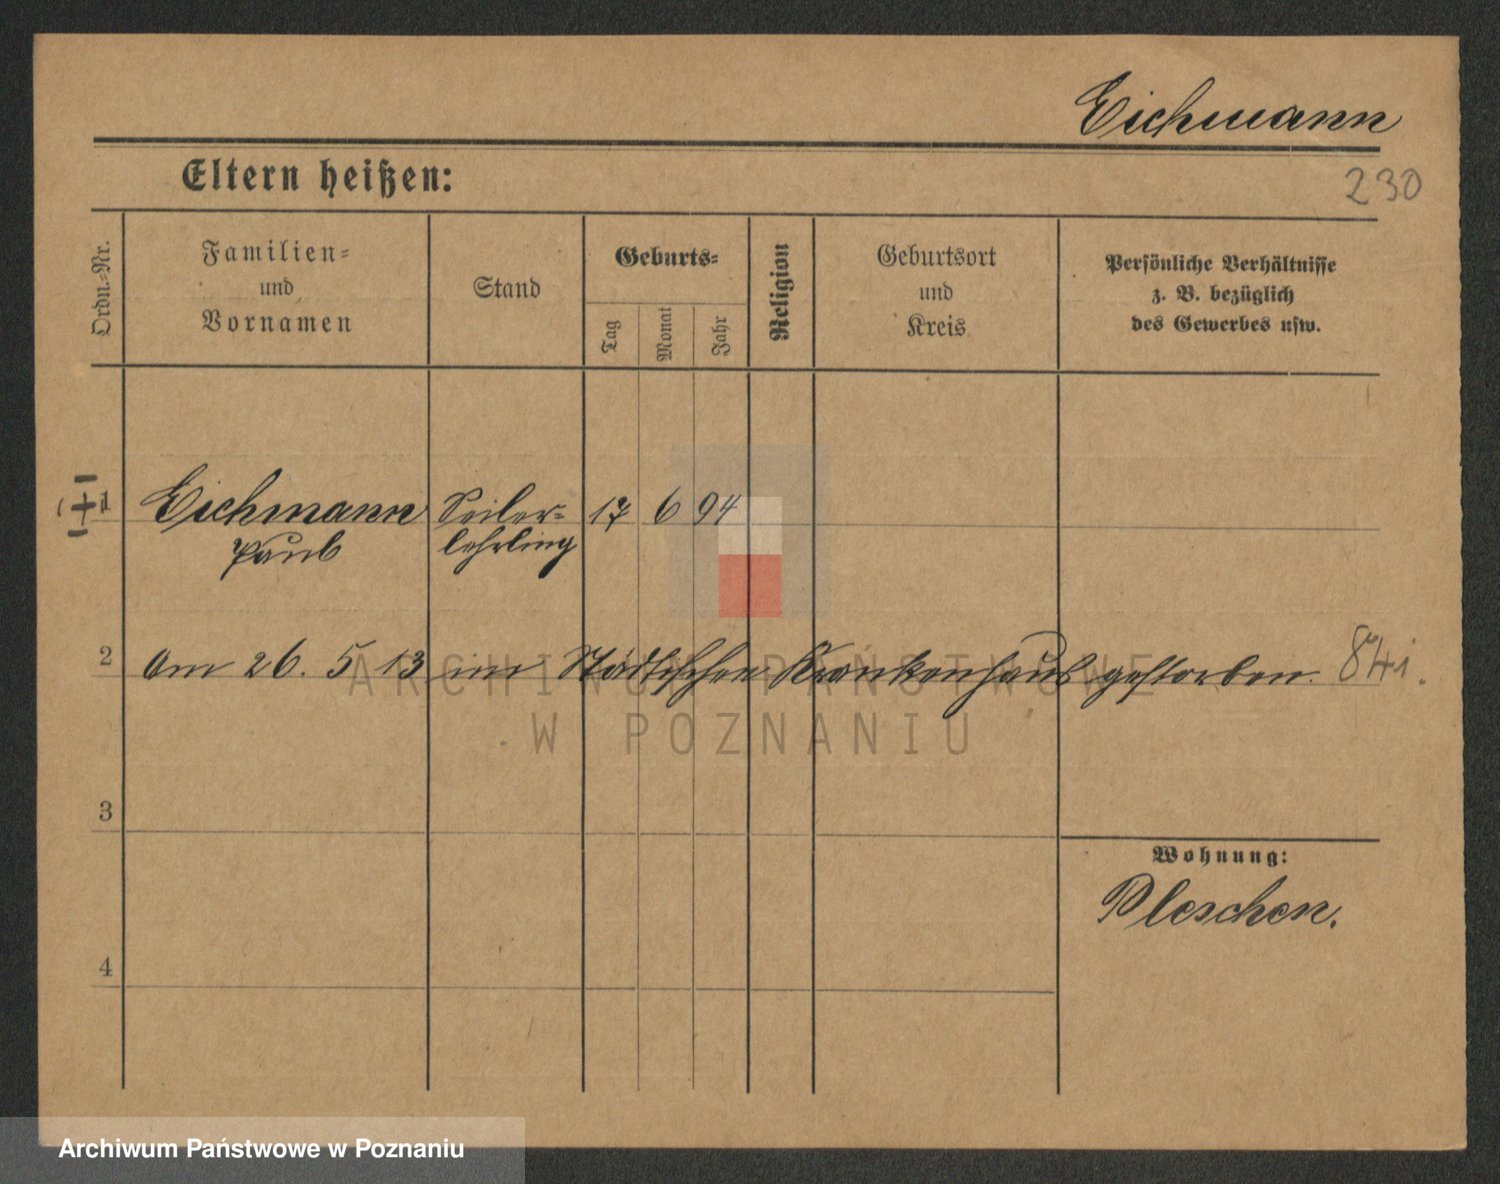 Eichmann
Eltern heißen:
230
Ordn.-Nr.
Familien-
und
Vornamen
Stand
Geburts-
Tag
Monat
Jahr
Religion
Geburtsort
und
Kreis
Persönliche Verhältnisse
z. B. bezüglich
des Gewerbes usw.
1 Eichmann Seiler- 17 6 94
Paul lehrling
2 Am 26. 5 13 im Städtischen Krankenhaus gestorben.
ARCHIWUM PAŃSTWOWE
W POZNANIU
3
Wohnung:
Pleschen.
4
Archiwum Państwowe w Poznaniu